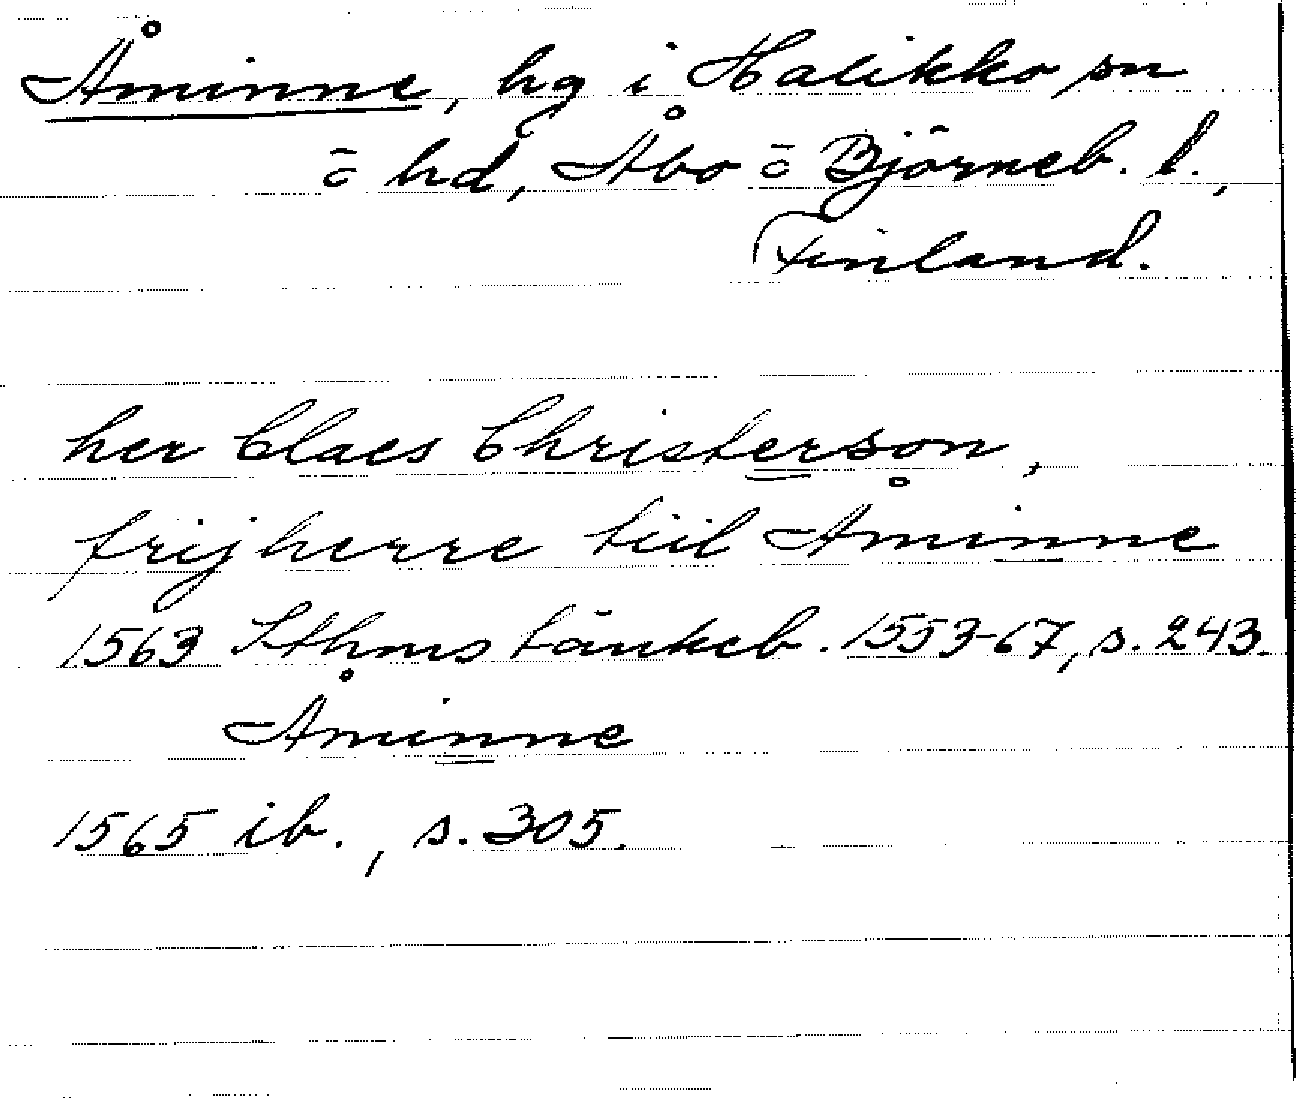 Åminne, hg i Halikko sn
o hd, Åbo o Björneb. l.,
Finland.
her Claes Christerson,
frijherre tiil Åminne
1563 Sthms tänkeb. 1553-67, s. 243.
Åminne
1565 ib., s. 305.